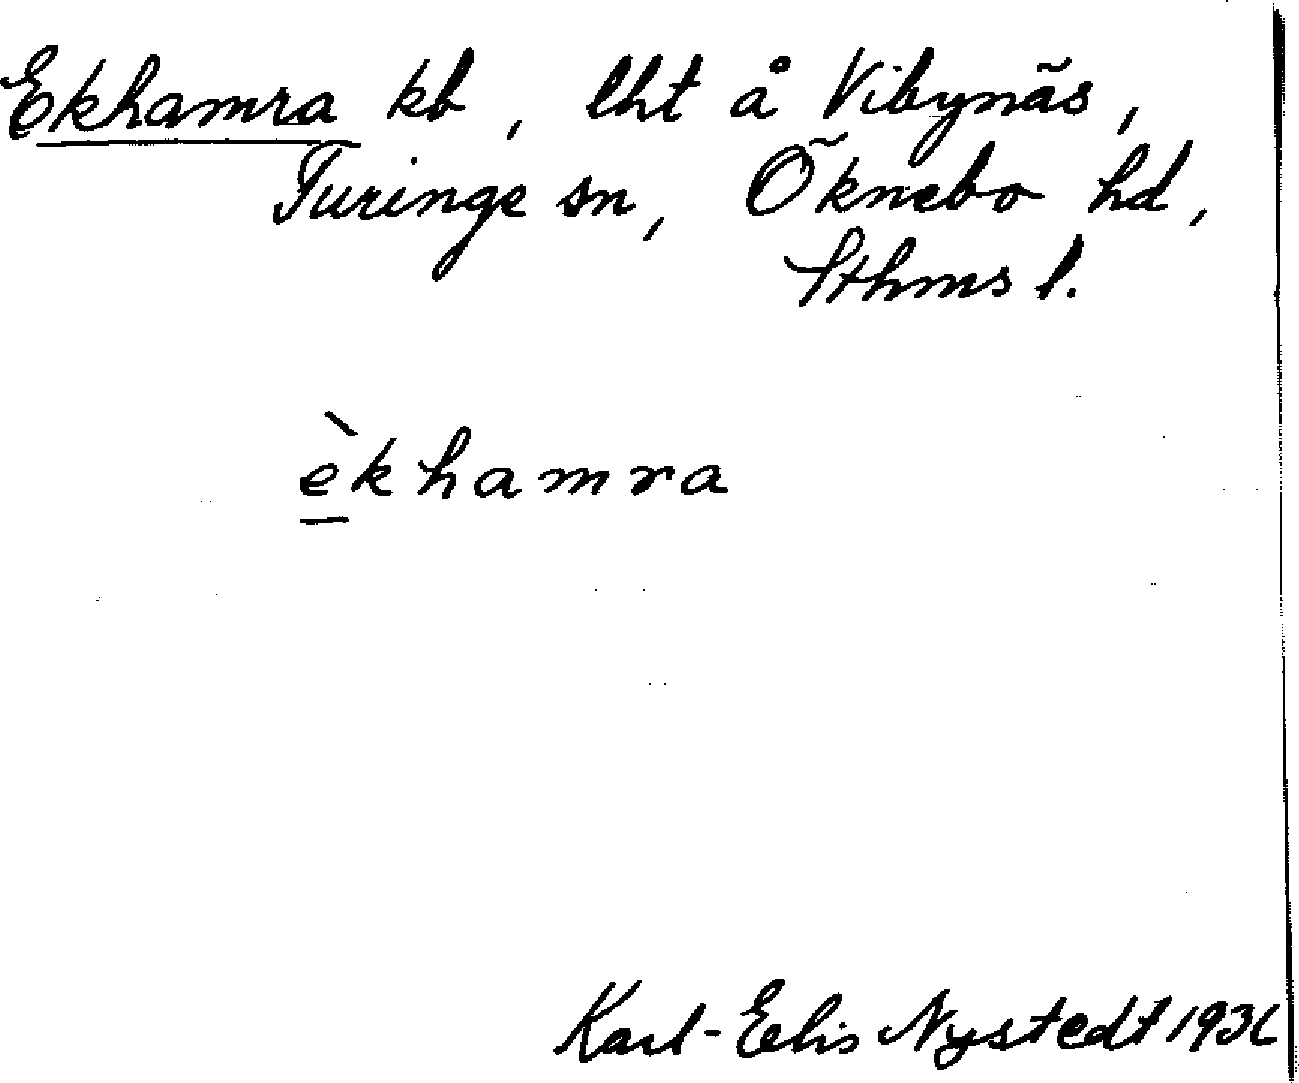 Ekhamra kb, lht å Vibynäs,
Turinge sn, Öknebo hd,
Sthms l.
èkhamra
Karl-Elis Nystedt